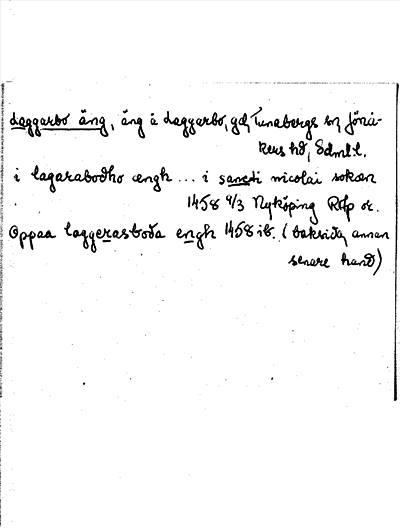 Laggarbo äng, äng å Laggarbo, gd, Tunabergs sn, Jönå-
kers hd, Sdml l.
i lagarabodho ængh ... i sancti nicolai sokæn
1458 4/3 Nyköping RAp or.
Oppaa laggerasboda engh 1458 ib. (baksida, annan
senare hand)